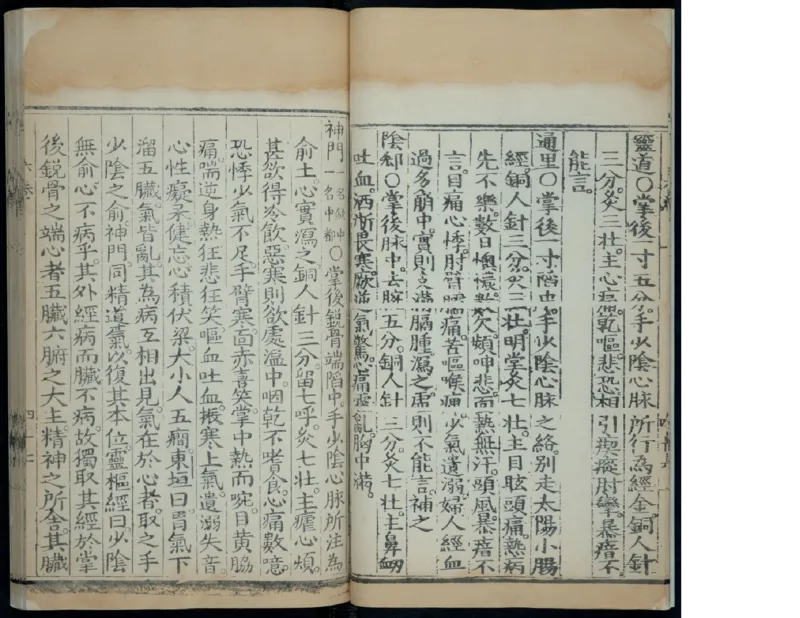 靈道○掌後一寸五分。手少陰心脉所行為經金。銅人針
三分。灸三壯。主心痛。乾嘔。悲恐。相引瘈瘲。肘攣。暴瘖不
能言。
通里○掌後一寸陷中。手少陰心脉之絡。別走太陽小腸
經。銅人針三分。灸三壯。明堂灸七壯。主目眩頭痛。熱病
先不樂。數日懊憹。數欠頻呻悲。面熱無汗。頭風。暴瘖不
言。目痛心悸。肘臂臑痛。苦嘔喉痺。少氣遺溺。婦人經血
過多崩中。實則支滿膈腫。瀉之。虛則不能言。補之
陰郄○掌後脉中。去腕五分。銅人針三分。灸七壯。主鼻衄
吐血。洒淅畏寒。厥逆氣驚。心痛霍亂。胸中滿。
神門 一名銳中 一名中都 ○掌後銳骨端陷中。手少陰心脉所注為
俞土。心實瀉之。銅人針三分。留七呼。灸七壯。主瘧心煩。
甚欲得冷飲。惡寒則欲處溫中。咽乾不嗜食。心痛數噫。
恐悸少氣不足。手臂寒。面赤喜笑。掌中熱而啘。目黃脇
痛。喘逆身熱。狂悲狂笑。嘔血吐血。振寒上氣。遺溺失音。
心性癡呆。健忘。心積伏梁。大小人五癇。東垣曰。胃氣下
溜。五臟氣皆亂。其為病互相出見。氣在於心者。取之手
少陰之俞神門。同精道氣以復其本位。靈樞經曰。少陰
無俞。心不病乎。其外經病而臟不病。故獨取其經於掌
後銳骨之端。心者五臟六腑之大主。精神之所舍。其臟
六卷
四十二